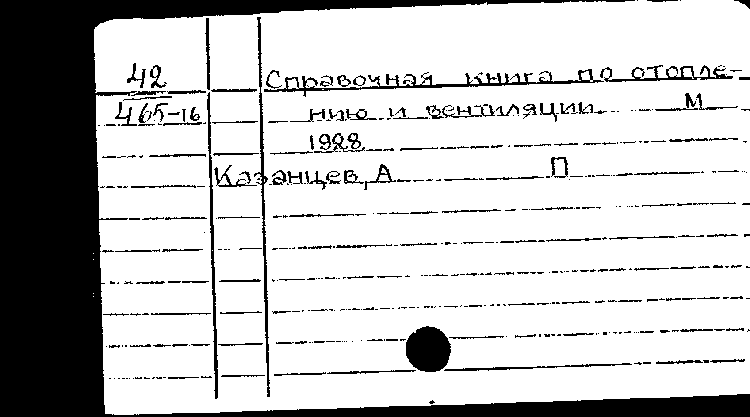 42 Справочная книга по отопле-
465-16 нию и вентиляции. М
1928
Казанцев, А П